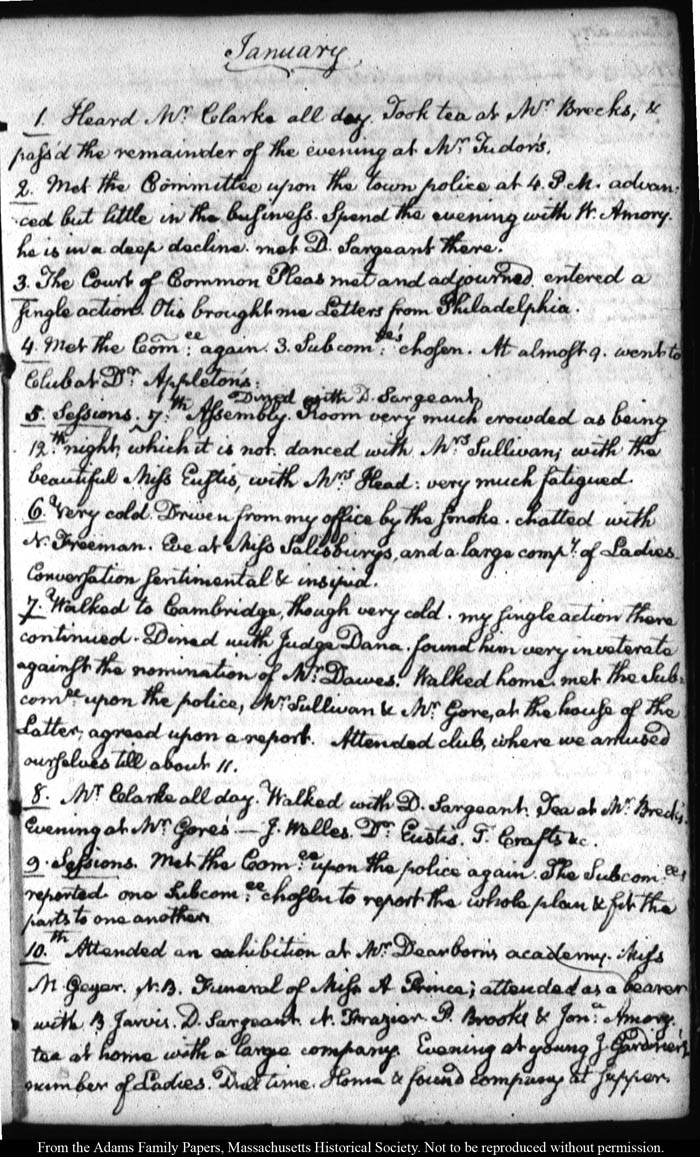 January
1. Heard Mr. Clarke all day. Took tea at Mr. Brecks, &
pass'd the remainder of the evening at Mr. Tudor's.
2. Met the Committee upon the town police at 4. P.M. advan:
:ced but little in the business. Spend the evening with W. Amory.
he is in a deep decline. met D. Sargeant there.
3. The Court of Common Pleas met and adjourned. entered a
single action. Otis brought me Letters from Philadelphia.
4. Met the Com:ee again. 3. Subcom:ee's chosen. At almost 9. went to
Club at Dr. Appleton's:
Dined with D. Sargeant
5. Sessions. 7:th Assembly. Room very much crowded as being
12:th night, which it is not. danced with Mrs. Sullivan; with the
beautiful Miss Eustis, with Mrs. Head: very much fatigued.
6. Very cold. Driven from my office by the smoke. chatted with
N. Freeman. Eve at Miss Salisbury's, and a large comp.y of Ladies.
Conversation sentimental & insipid.
7. Walked to Cambridge, though very cold. my single action there
continued. Dined with Judge Dana. found him very inveterate
against the nomination of Mr. Dawes. Walked home. met the Sub:
com:ee upon the police, Mr. Sullivan & Mr. Gore, at the house of the
Latter; agreed upon a report. Attended club, where we amused
ourselves till about 11.
8. Mr. Clarke all day. Walked with D. Sargeant. Tea at Mr. Breck's.
Evening at Mr. Gore's — J. Walles. Dr. Eustis. T. Crafts &c.
9. Sessions. Met the Com:ee upon the police again. The Subcom:ees
reported. one Subcom:ee chosen to report the whole plan & fit the
parts to one another.
10.th Attended an exhibition at Mr. Dearborn's academy. Miss
M. Geyer. N.B. Funeral of Miss A Prince; attended as a bearer
with B Jarvis. D. Sargeant. N. Frazier. P. Brooks & Jon:a Amory.
tea at home with a large company. Evening at young J. Gardner's
number of Ladies. Dull time. Home & found company at supper.
From the Adams Family Papers, Massachusetts Historical Society. Not to be reproduced without permission.